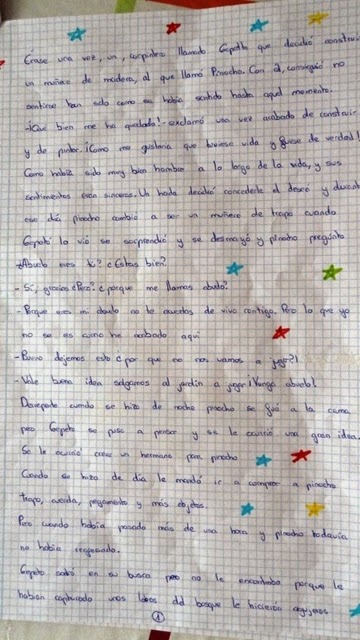 Érase una vez, un, carpintero llamado Gepetto que decidió construir
un muñeco de madera, al que llamó Pinocho. Con él, consiguió no
sentirse tan solo como se había sentido hasta aquel momento.
-¡Qué bien me ha quedado!- exclamó una vez acabado de construir
y de pintar. ¡Como me gustaria que tuviese vida y fuese de verdad!
Como había sido muy buen hombre a lo largo de la vida, y sus
sentimientos eran sinceros. Un hada decidió concederle el deseo y durante
ese día pinocho cambió a ser un muñeco de trapo cuando
Gepeto lo vió se sorprendió y se desmayó y pinocho preguntó
¿Abuelo eres tú? ¿Estas bien?
- Sí, gracias ¿Pero? ¿porque me llamas abuelo?
- Porque eres mi abuelo no te acuerdas de vivo contigo. Pero lo que yo
no se es como he acabado aquí
- Bueno dejemos esto ¿por que no nos vamos a jugar?!
- Vale buena idea salgamos al jardín a jugar ¡Venga abuelo!
Después cuando se hizo de noche pinocho se fué a la cama
pero Gepeto se puso a pensar y se le ocurrió una gran idea.
Se le ocurrió crear un hermano para pinocho
Cuando se hizo de día le mandó ir a comprar a pinocho
trapo, cuerda, pegamento y más objetos.
Pero cuando había pasado más de una hora y pinocho todavía
no había regresado.
Gepeto salió en su busca pero no le encontraba porque le
habían capturado unos lobos del bosque le hicierón agujeros
1